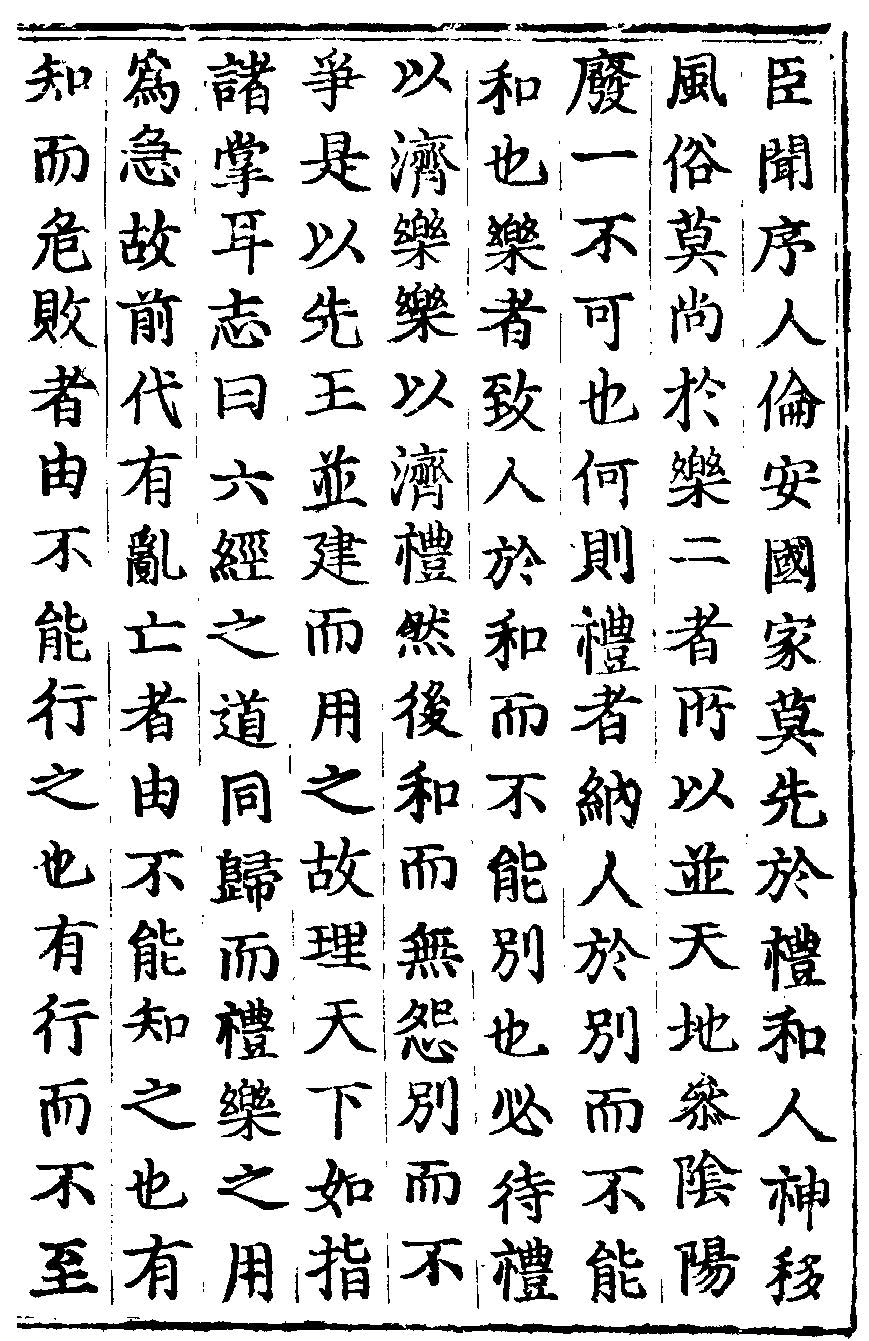 臣聞序人倫安國家莫先於禮和人神移
風俗莫尚於樂二者所以並天地叅陰陽
廢一不可也何則禮者納人於別而不能
和也樂者致人於和而不能別也必待禮
以濟樂樂以濟禮然後和而無怨別而不
爭是以先王並建而用之故理天下如指
諸掌耳志曰六經之道同歸而禮樂之用
爲急故前代有亂亡者由不能知之也有
知而危敗者由不能行之也有行而不至